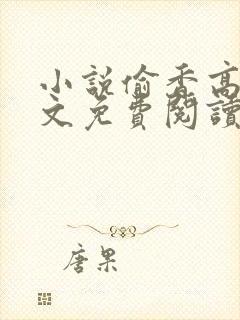 小説偷香高
文免費閱讀
唐果